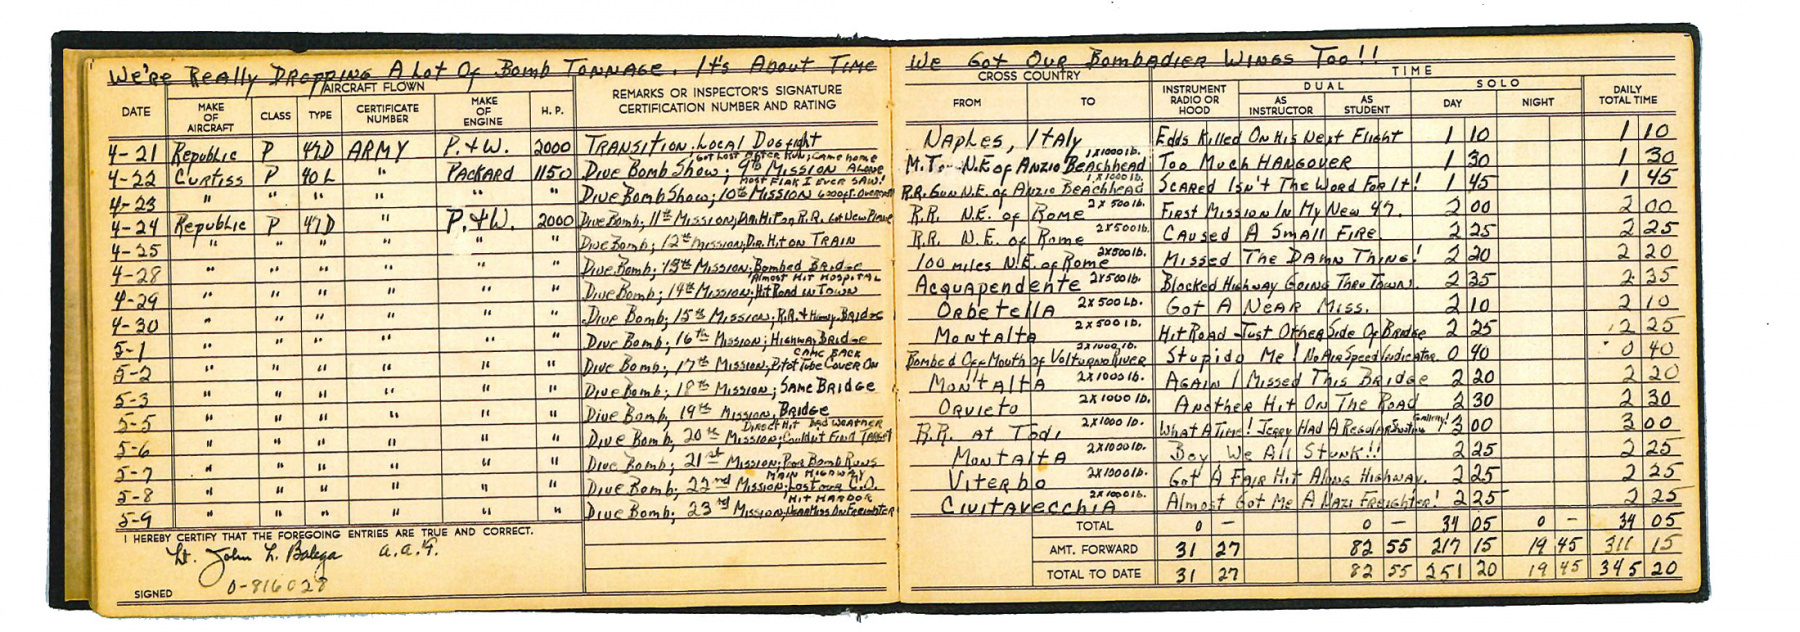 We're Really Dropping A Lot Of Bomb Tonnage. It's About Time We Got Our Bombadier Wings Too!!
AIRCRAFT FLOWN CROSS COUNTRY TIME
DATE MAKE OF AIRCRAFT CLASS TYPE CERTIFICATE NUMBER MAKE OF ENGINE H. P. REMARKS OR INSPECTOR'S SIGNATURE CERTIFICATION NUMBER AND RATING FROM TO INSTRUMENT RADIO OR HOOD DUAL AS INSTRUCTOR AS STUDENT SOLO DAY NIGHT DAILY TOTAL TIME
4-21 Republic P 47D ARMY P. & W. 2000 Transition-Local Dogfight Naples, Italy Edds Killed On His Next Flight 1 10 1 10
4-22 Curtiss P 40L " Packard 1150 Dive Bomb Show; 9th Mission Got Lost After Run; Came home Alone M.T. N.E of Anzio Beachhead 1x1000 lb. Too Much Hangover 1 30 1 30
4-23 " " " " " " Dive Bomb Show; 10th Mission Most Flak I Ever Saw! R.R. Gun N.E. of Anzio Beachhead 1x1000 lb. Scared Isn't The Word For It! 1 45 1 45
4-24 Republic P 47D " P. & W. 2000 Dive Bomb; 11th Mission; Dir. Hit on R.R. Got New Plane R.R. N.E. of Rome 2x500 lb. First Mission In My New 47. 2 00 2 00
4-25 " " " " " " Dive Bomb; 12th Mission; Dir. Hit on Train R.R. N.E. of Rome 2x500 lb. Caused A Small Fire. 2 25 2 25
4-28 " " " " " " Dive Bomb; 13th Mission; Bombed Bridge 100 miles N.E. of Rome 2x500 lb. Missed The Damn Thing! 2 20 2 20
4-29 " " " " " " Dive Bomb; 14th Mission; Almost Hit Hospital Hit Road in Town Acquapendente 2x500 lb. Blocked Highway Going Thru Town. 2 35 2 35
4-30 " " " " " " Dive Bomb; 15th Mission; R.R. & Hiway Bridge Orbetella 2x500 Lb. Got A Near Miss. 2 10 2 10
5-1 " " " " " " Dive Bomb; 16th Mission; Highway Bridge Montalta 2x500 lb. Hit Road Just Other Side Of Bridge 2 25 2 25
5-2 " " " " " " Dive Bomb; 17th Mission; Came Back Pitot Tube Cover On Bombed Off Mouth of Volturno River 2x1000 lb. Stupido Me! No Air Speed Indicator. 0 40 0 40
5-3 " " " " " " Dive Bomb; 18th Mission; Same Bridge Montalta 2x1000 lb. Again I Missed This Bridge 2 20 2 20
5-5 " " " " " " Dive Bomb, 19th Mission, Bridge Orvieto 2x1000 lb. Another Hit On The Road 2 30 2 30
5-6 " " " " " " Dive Bomb, 20th Mission; Direct Hit Bad Weather Couldn't Find Target R.R. at Todi 2x1000 lb. What A Time! Jerry Had A Regular Shooting Gallery! 3 00 3 00
5-7 " " " " " " Dive Bomb; 21st Mission; Poor Bomb Runs Montalta 2x1000 lb. Boy We All Stunk!! 2 25 2 25
5-8 " " " " " " Dive Bomb; 22nd Mission; Main Highway Lost our C.O. Viterbo 2x1000 lb. Got A Fair Hit Along Highway. 2 25 2 25
5-9 " " " " " " Dive Bomb; 23rd Mission, Hit Harbor Near Miss On Freighter Civitavecchia 2x1000 lb. Almost Got Me A Nazi Freighter! 2 25 2 25
I HEREBY CERTIFY THAT THE FOREGOING ENTRIES ARE TRUE AND CORRECT. TOTAL 0 - 0 - 34 05 0 - 34 05
Lt. John L. Balega A.A.F. AMT. FORWARD 31 27 82 55 217 15 19 45 311 15
SIGNED O-816028 TOTAL TO DATE 31 27 82 55 251 20 19 45 345 20